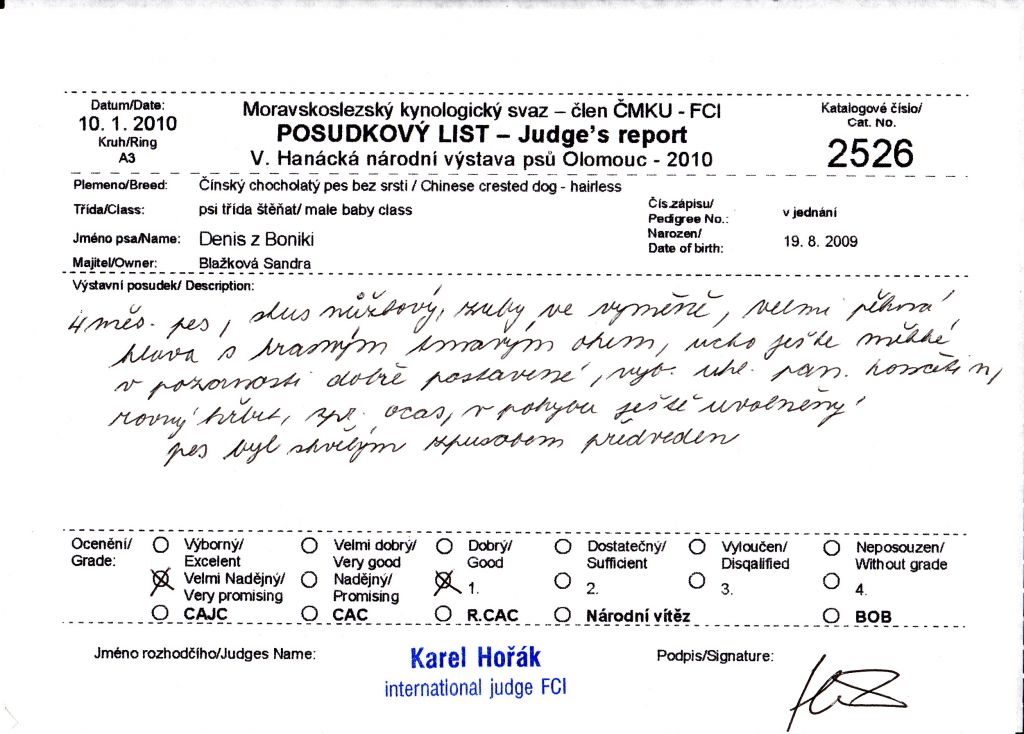 Datum/Date:
10. 1. 2010
Kruh/Ring
A3
Moravskoslezský kynologický svaz – člen ČMKU - FCI
POSUDKOVÝ LIST – Judge's report
V. Hanácká národní výstava psů Olomouc - 2010
Katalogové číslo/
Cat. No.
2526
Plemeno/Breed: Čínský chocholatý pes bez srsti / Chinese crested dog - hairless
Třída/Class: psi třída štěňat/ male baby class
Čís.zápisu/
Pedigree No.: v jednání
Jméno psa/Name: Denis z Boniki
Narozen/
Date of birth: 19. 8. 2009
Majitel/Owner: Blažková Sandra
Výstavní posudek/ Description:
4 měs. pes, skus nůžkový, zuby ve výměně, velmi pěkná
hlava s krásným tmavým okem, ucho ještě měkké
v pozornosti dobře postavené, výb. úhl. pán. končetin,
rovný hřbet, spr. ocas, v pohybu ještě uvolněný
pes byl skvělým způsobem předveden
Ocenění/
Grade:
Výborný/
Excelent
Velmi dobrý/
Very good
Dobrý/
Good
Dostatečný/
Sufficient
Vyloučen/
Disqalified
Neposouzen/
Without grade
Velmi Nadějný/
Very promising
Nadějný/
Promising
1.
2.
3.
4.
CAJC CAC R.CAC Národní vítěz BOB
Jméno rozhodčího/Judges Name:
Karel Hořák
international judge FCI
Podpis/Signature: